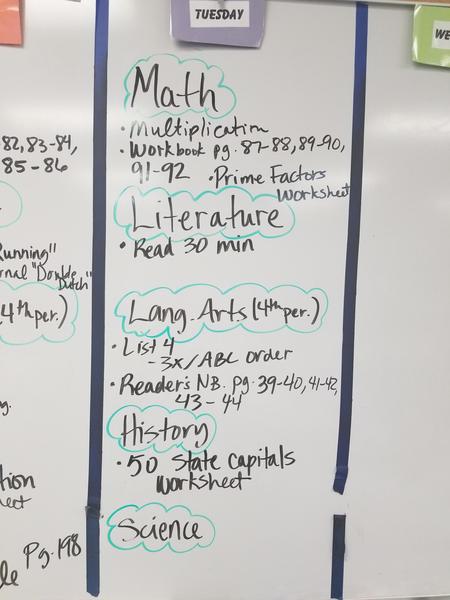 TUESDAY
WE
Math
• Multiplication
• Workbook pg. 87-88, 89-90,
91-92 • Prime Factors
Worksheet
Literature
• Read 30 min
Lang. Arts (4th per.)
• List 4
- 3x/ABC order
• Reader's NB. pg. 39-40, 41-42,
43-44
History
• 50 State Capitals
Worksheet
Science
82, 83-84,
85-86
Running"
rnal "Double
Dutch"
(4th per.)
Pg. 198